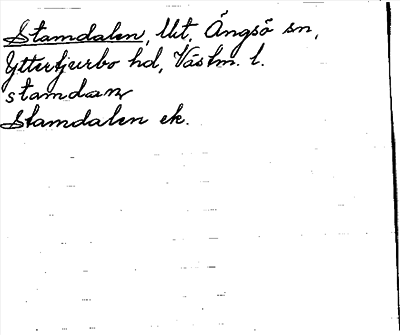 Stamdalen, Utt, Ängsö sn,
Yttertjurbo hd, Västm. l.
stamdan
Stamdalen ek.